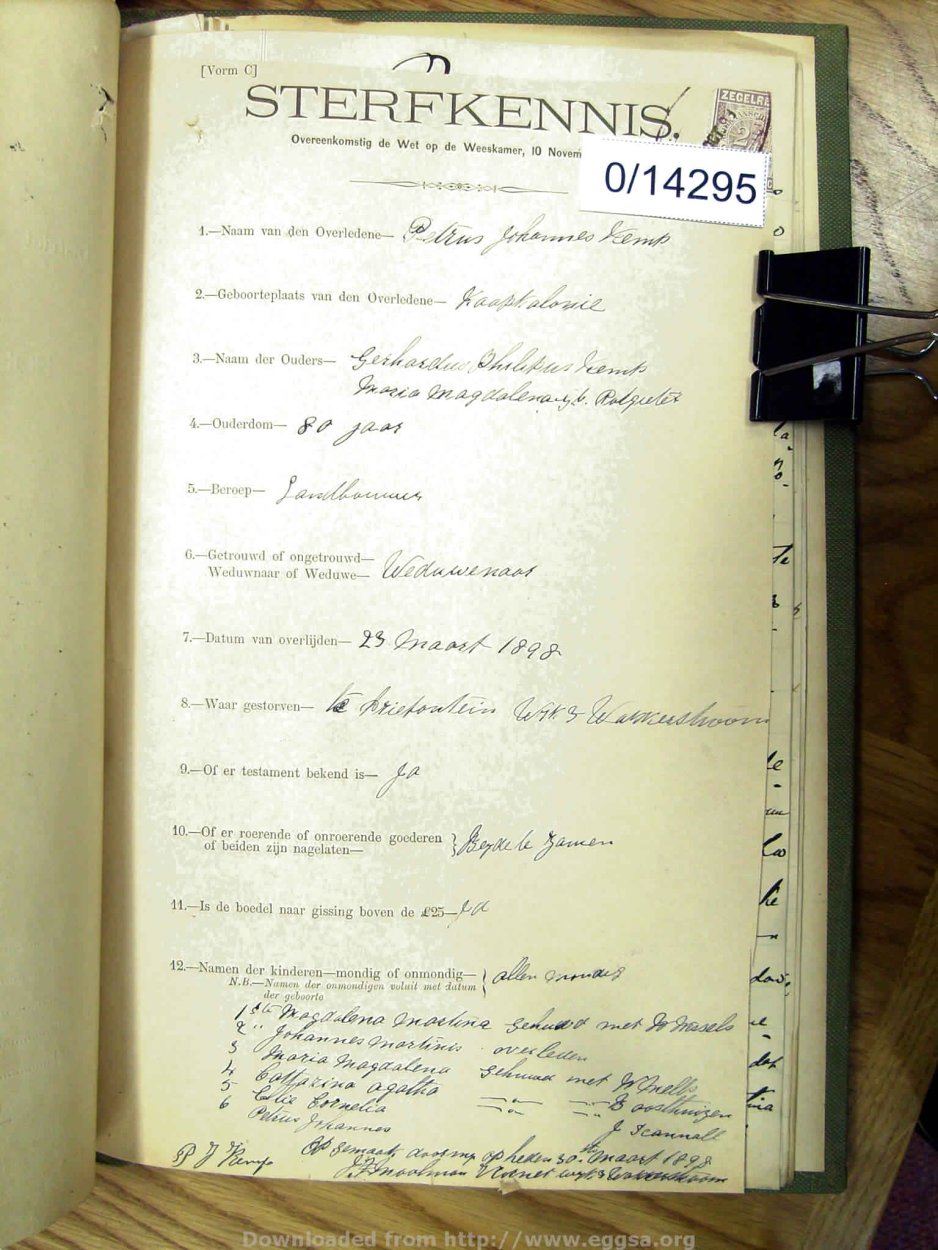 [Vorm C]
STERFKENNIS.
ZEGELR
Overeenkomstig de Wet op de Weeskamer, 10 Novem
0/14295
1.—Naam van den Overledene— Petrus Johannes Kemp
2.—Geboorteplaats van den Overledene— Kaapkalonie
3.—Naam der Ouders— Gerhardus Philipus Kemp
Maria Magdalena g.b. Potgieter
4.—Ouderdom— 80 jaar
5.—Beroep— Landbouwer
6.—Getrouwd of ongetrouwd—
Weduwnaar of Weduwe— Weduwenaar
7.—Datum van overlijden— 23 Maart 1898
8.—Waar gestorven— te Driefontein Wyk 3 Wakkerstroom
9.—Of er testament bekend is— Ja
10.—Of er roerende of onroerende goederen
of beiden zijn nagelaten— } Beyde te Zamen
11.—Is de boedel naar gissing boven de £25— Ja
12.—Namen der kinderen—mondig of onmondig— } allen mondig
N.B.—Namen der onmondigen voluit met datum
der geboorte
1ste Magdalena Martina gehuwd met
2 " Johannes Martinis overleden
3 Maria Magdalena gehuwd met
4 Cattarina Agatha Oosthuizen
5 Cornelia J Scannell
6 Petrus Johannes
P J Kemp Op gemaakt door my op heden 30ste Maart 1898
Moolman Vcornet wyk 3 Wakkerstroom
Downloaded from http://www.eggsa.org